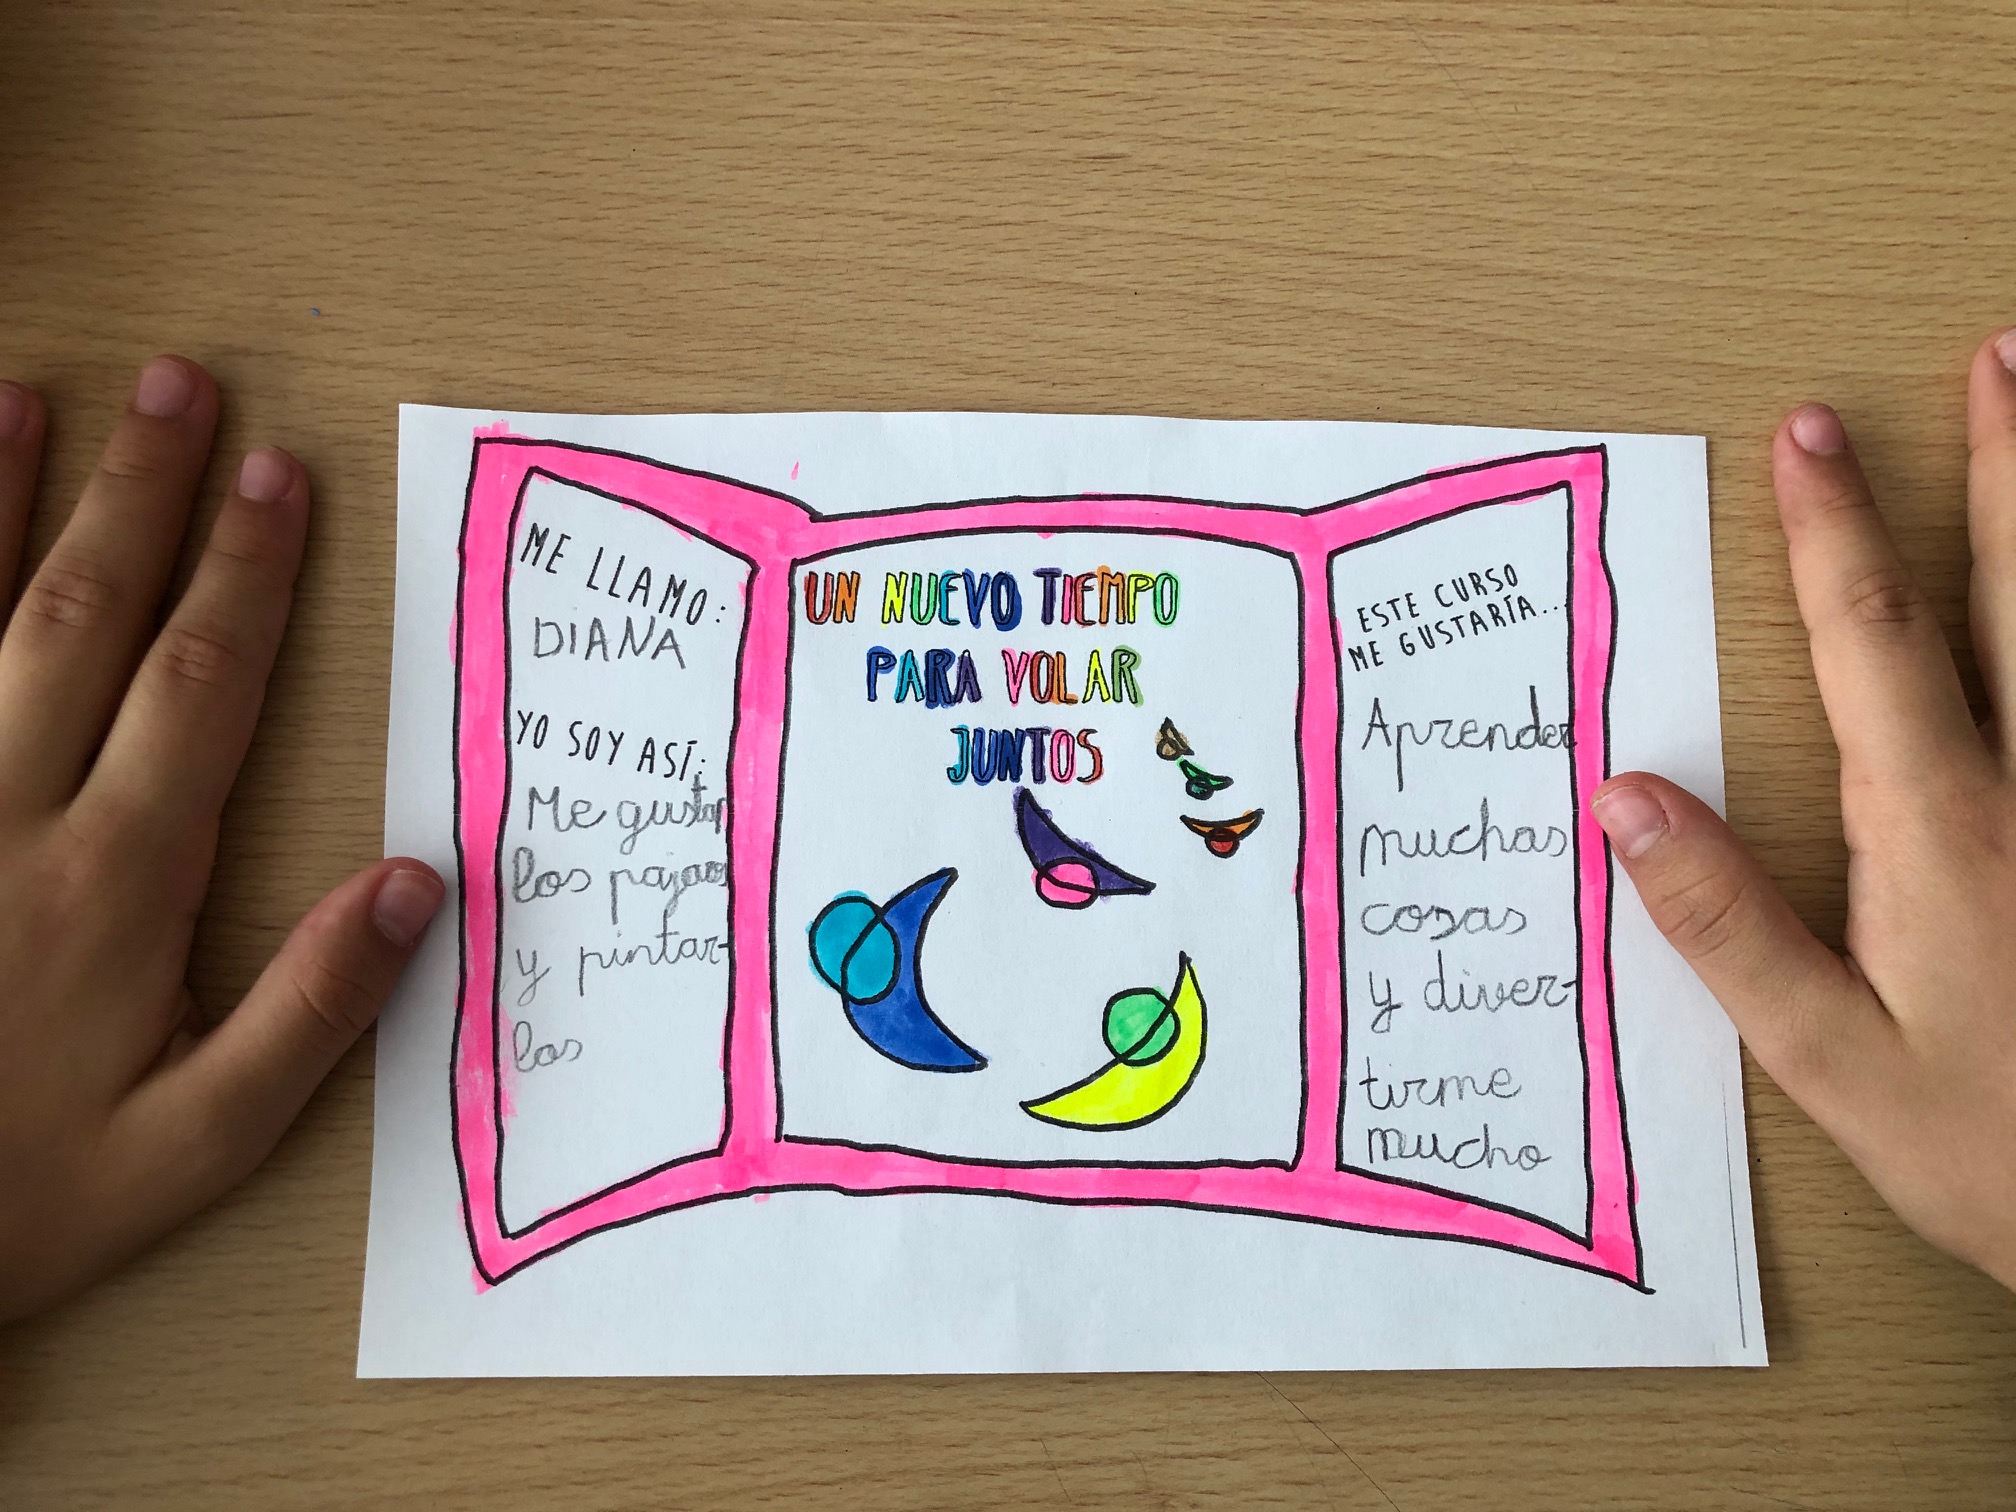 ME LLAMO:
DIANA
YO SOY ASÍ:
Me gustan
los pajaros
y pintar-
los
UN NUEVO TIEMPO
PARA VOLAR
JUNTOS
ESTE CURSO
ME GUSTARÍA...
Aprender
muchas
cosas
y diver-
tirme
mucho